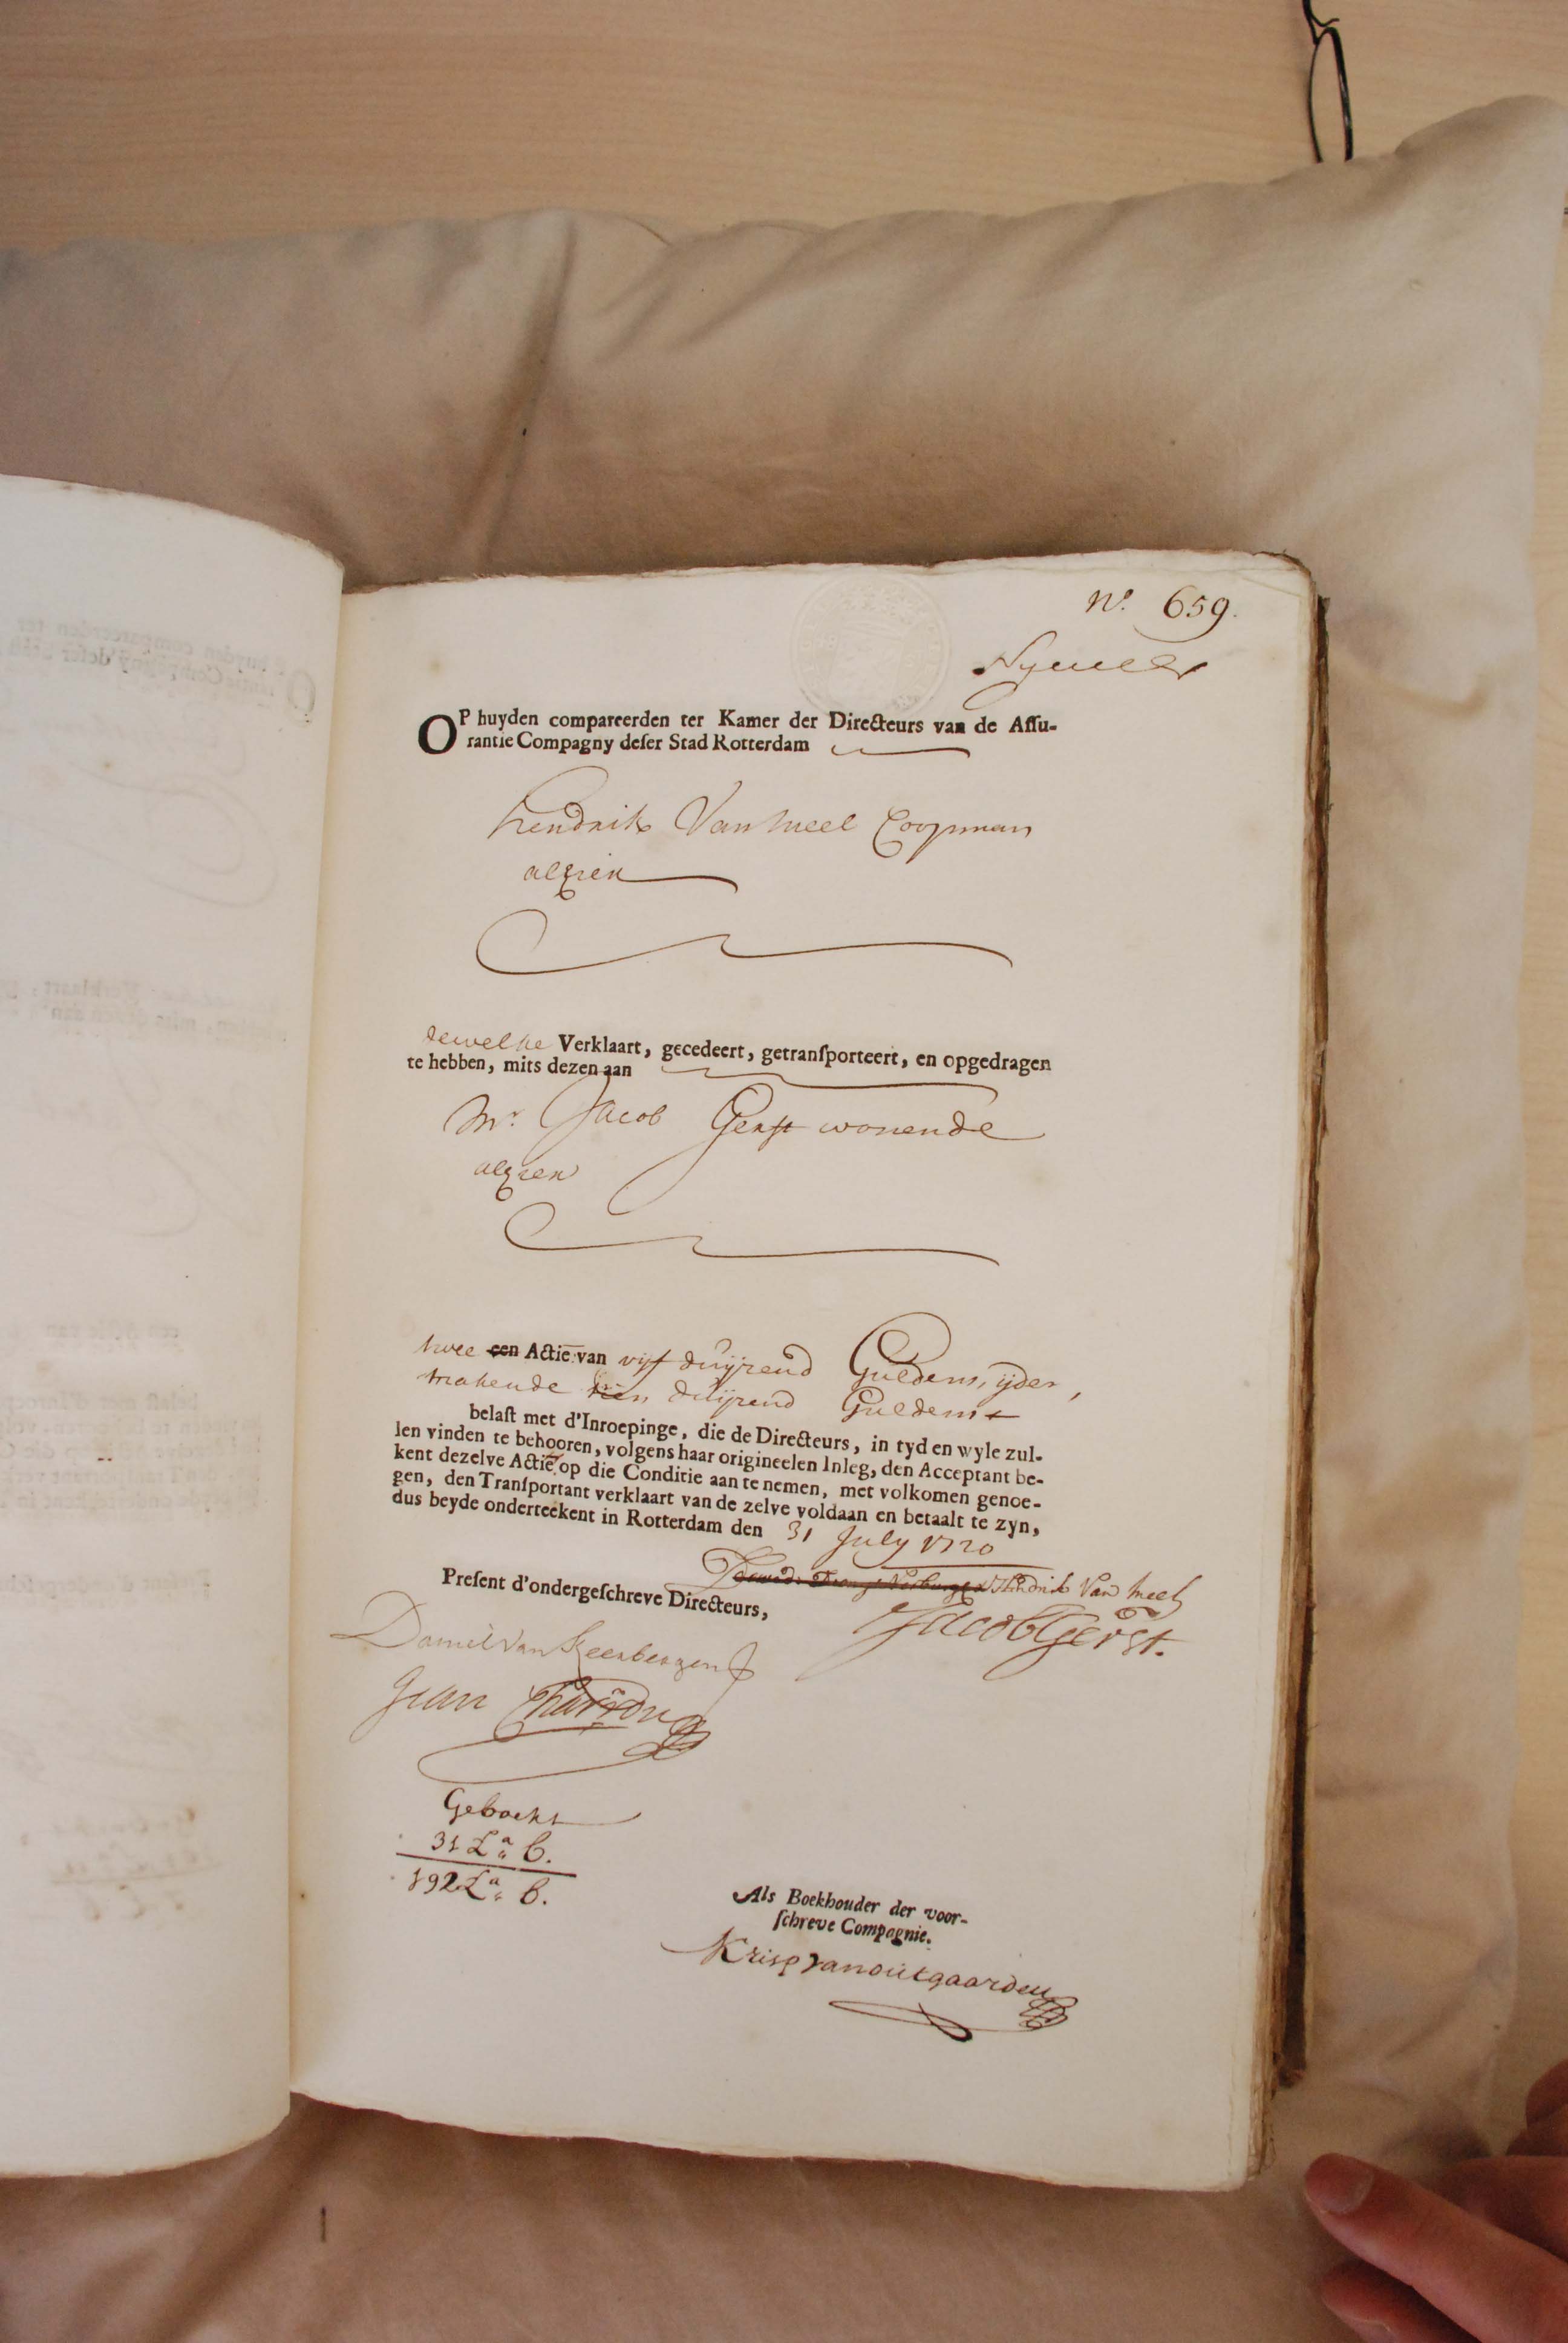 N.º 659.
OP huyden compareerden ter Kamer der Directeurs van de Aſſu-
rantie Compagny deſer Stad Rotterdam
hendrik Van meel Coopman
alhier
dewelke Verklaart, gecedeert, getranſporteert, en opgedragen
te hebben, mits dezen aan
Mr. Jacob Gerst wonende
alhier
twee een Actie van vijf duijzend Guldens, ijder,
makende tien duijzend Guldens
belaſt met d'Inroepinge, die de Directeurs, in tyd en wyle zul-
len vinden te behooren, volgens haar origineelen Inleg, den Acceptant be-
kent dezelve Actie op die Conditie aan te nemen, met volkomen genoe-
gen, den Tranſportant verklaart van de zelve voldaan en betaalt te zyn,
dus beyde onderteekent in Rotterdam den 31 July 1720
Hendrik Van meel
Preſent d'ondergeſchreve Directeurs,
Jacob Gerst.
Daniel van Steenbergen
Jean Charron
Geboekt
31 La B.
192 La B.
Als Boekhouder der voor-
ſchreve Compagnie.
Krisp van outgaarden